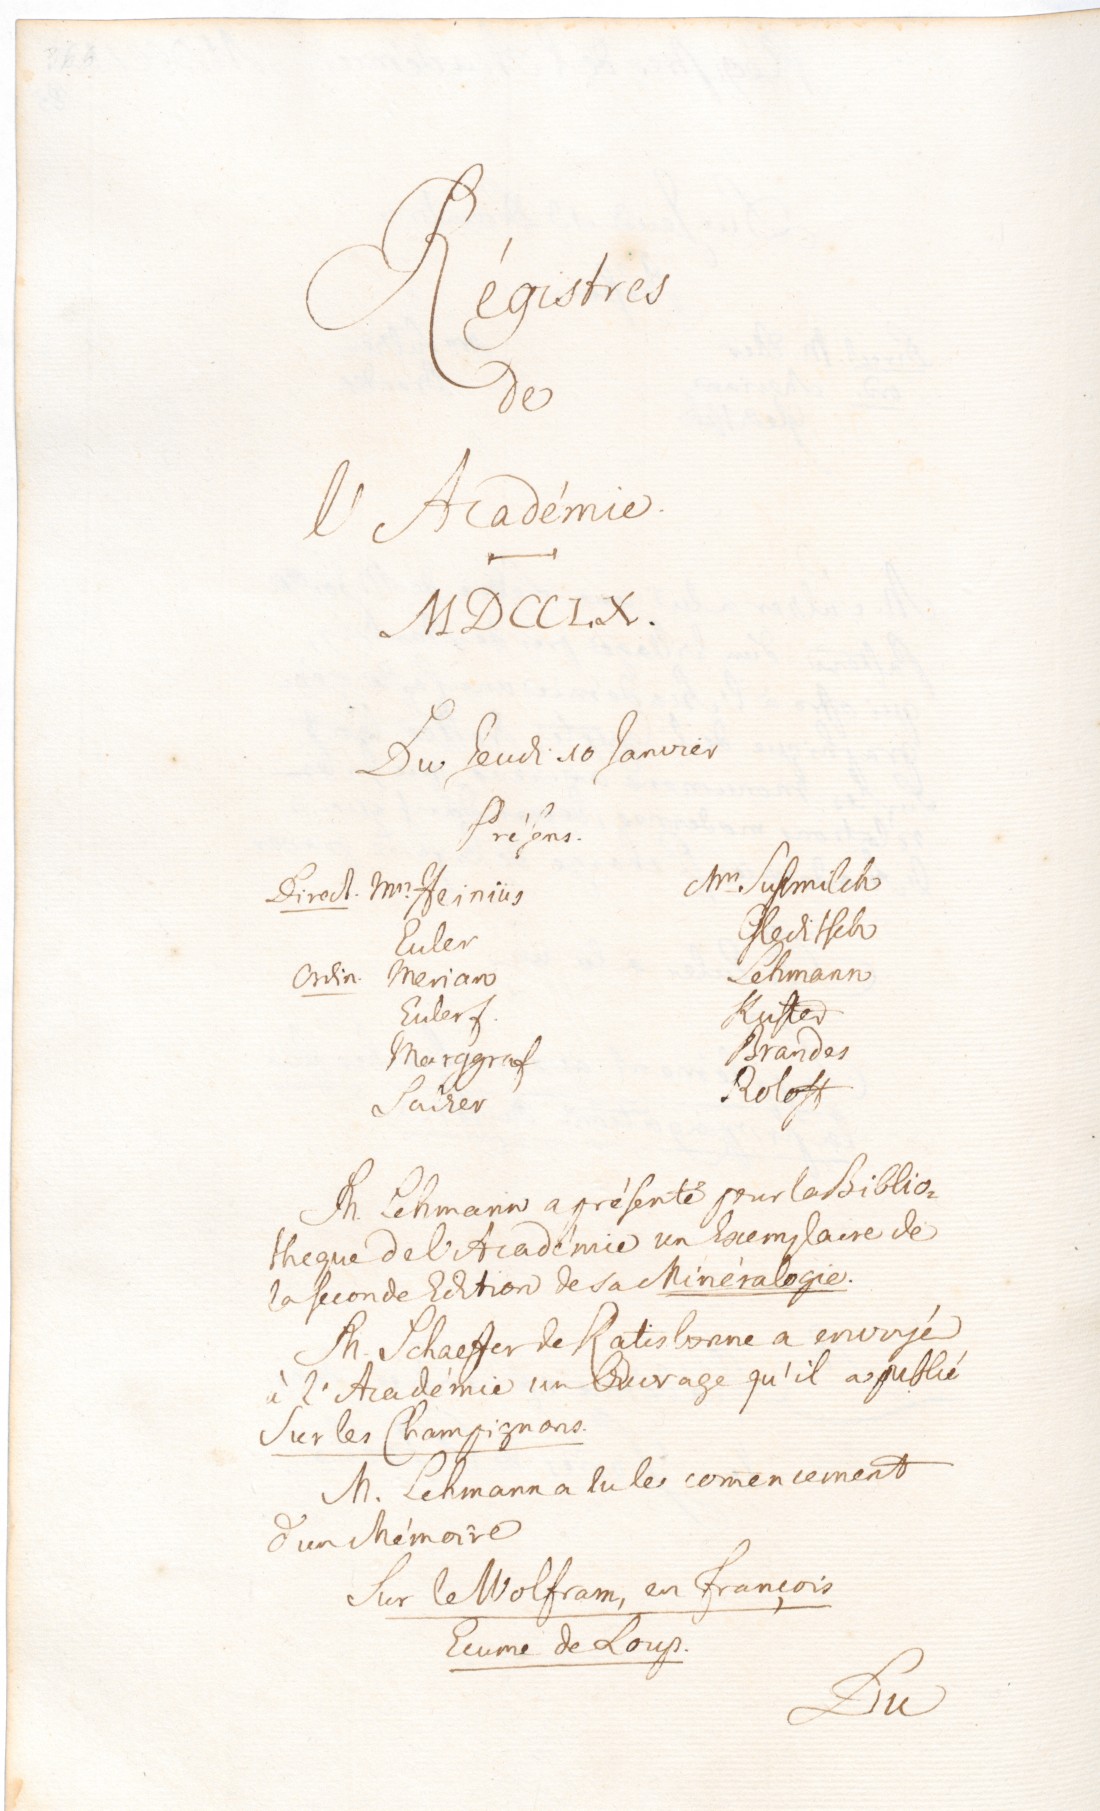 Régistres
de
l'Académie.
MDCCLX.
Du Jeudi 10 Janvier
Présens.
Direct. Mrs. Heinius
Euler
Ordin. Merian
Euler f.
Marggraf
Sulzer
Mrs. Susmilch
Gleditsch
Lehmann
Kuster
Brandes
Roloff
M. Lehmann a présenté pour la Biblio=
theque de l'Académie un Exemplaire de
la seconde Edition de sa Minéralogie.
M. Schaeffer de Ratisbonne a envoyé
à l'Académie un Ouvrage qu'il a publié
Sur les Champignons.
M. Lehmann a lu le comencement
d'un Mémoire
Sur le Wolfram, en François
Ecume de Loup.
Du